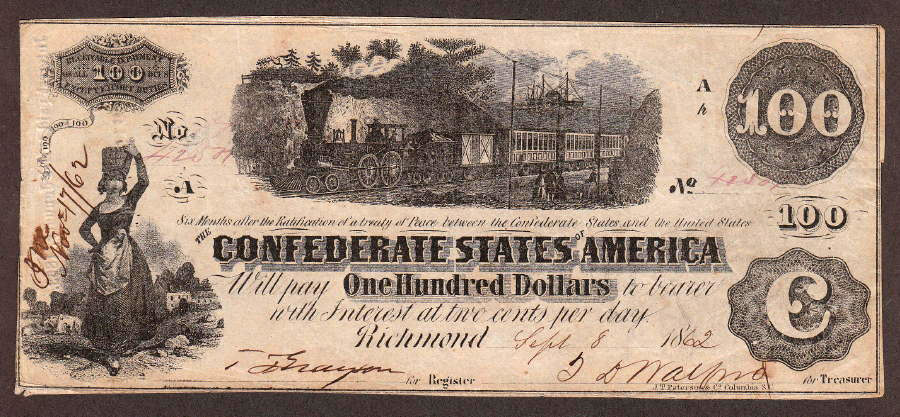 100
100
100 100 100
No
A
Nov 17/62
A
h
No
100
Six Months after the Ratification of a treaty of Peace between the Confederate States and the United States
THE CONFEDERATE STATES OF AMERICA
Will pay One Hundred Dollars to bearer
with Interest at two cents per day.
Richmond Sept 8 1862
for Register
for Treasurer
J.T. Paterson & Co Columbia S.C.
100
C